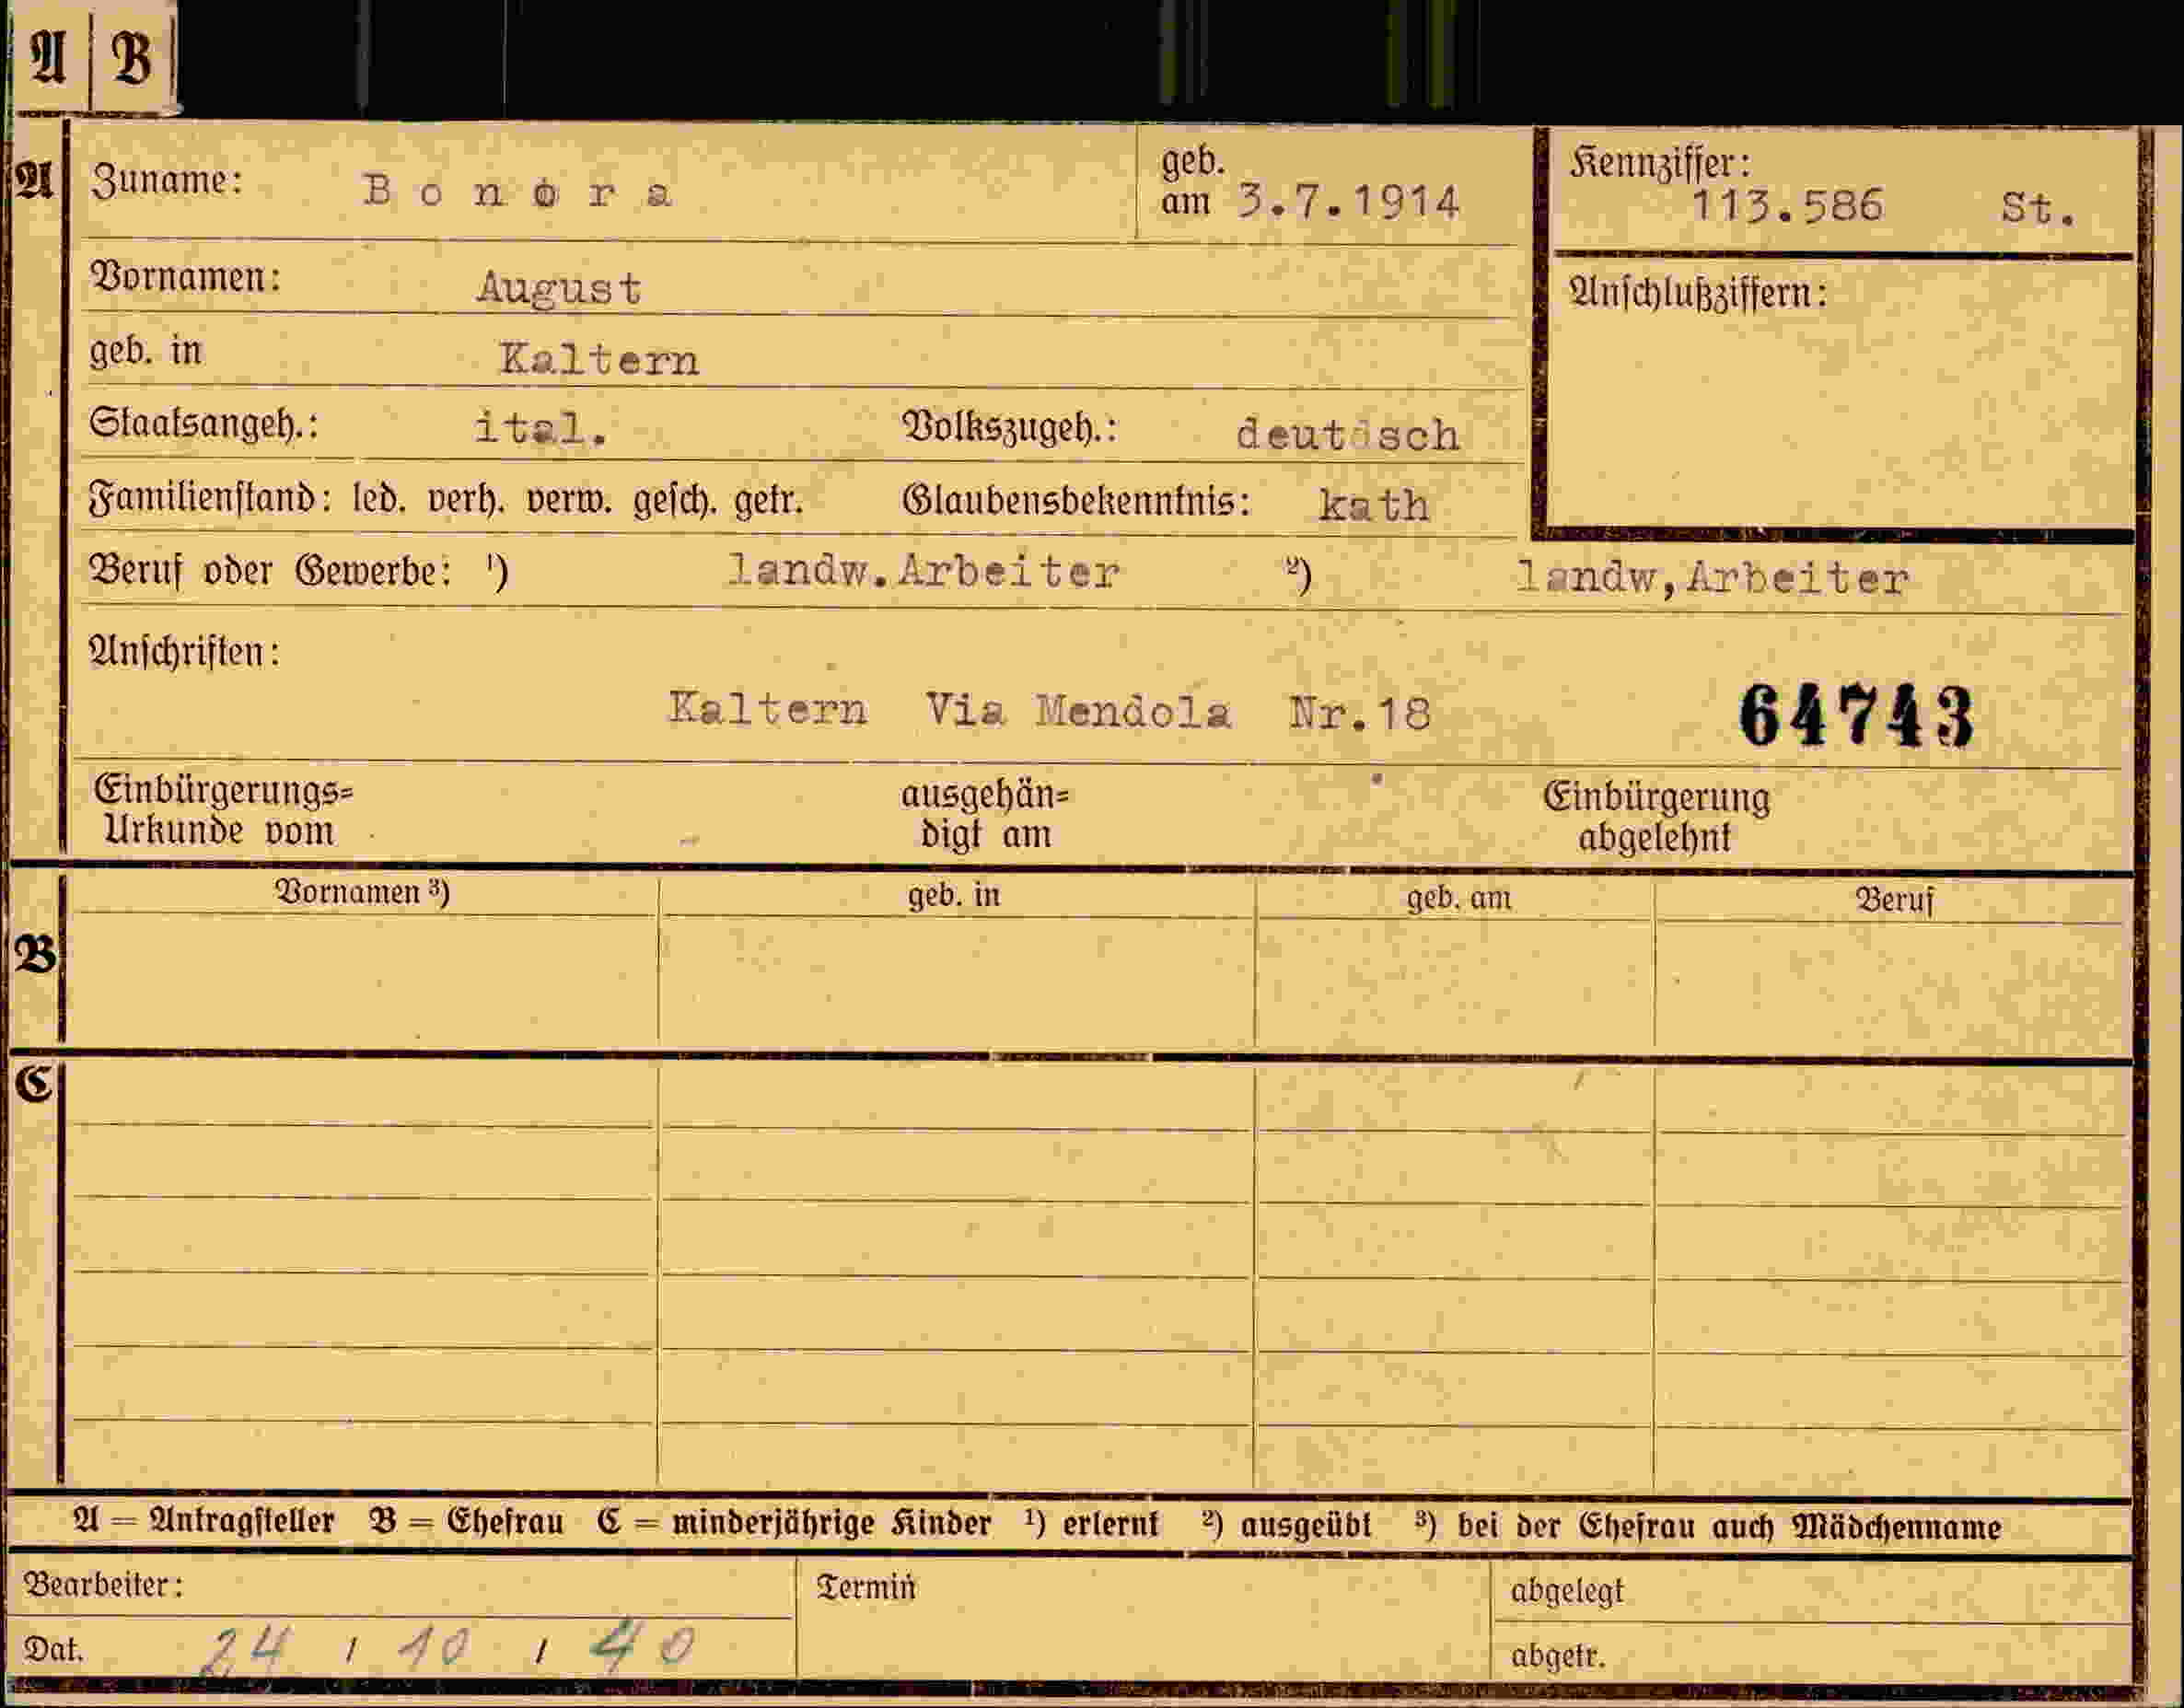 A B
A Zuname: Bonora geb. am 3.7.1914 Kennziffer: 113.586 St.
Vornamen: August Anschlußziffern:
geb. in Kaltern
Staatsangeh.: ital. Volkszugeh.: deutsch
Familienstand: led. verh. verw. gesch. getr. Glaubensbekenntnis: kath
Beruf oder Gewerbe: ¹) landw.Arbeiter ²) landw,Arbeiter
Anschriften:
Kaltern Via Mendola Nr.18 64743
Einbürgerungs= ausgehän= Einbürgerung
Urkunde vom digt am abgelehnt
Vornamen ³) geb. in geb. am Beruf
B
C
A = Antragsteller B = Ehefrau C = minderjährige Kinder ¹) erlernt ²) ausgeübt ³) bei der Ehefrau auch Mädchenname
Bearbeiter: Termin abgelegt
Dat. 24 / 10 / 40 abgetr.